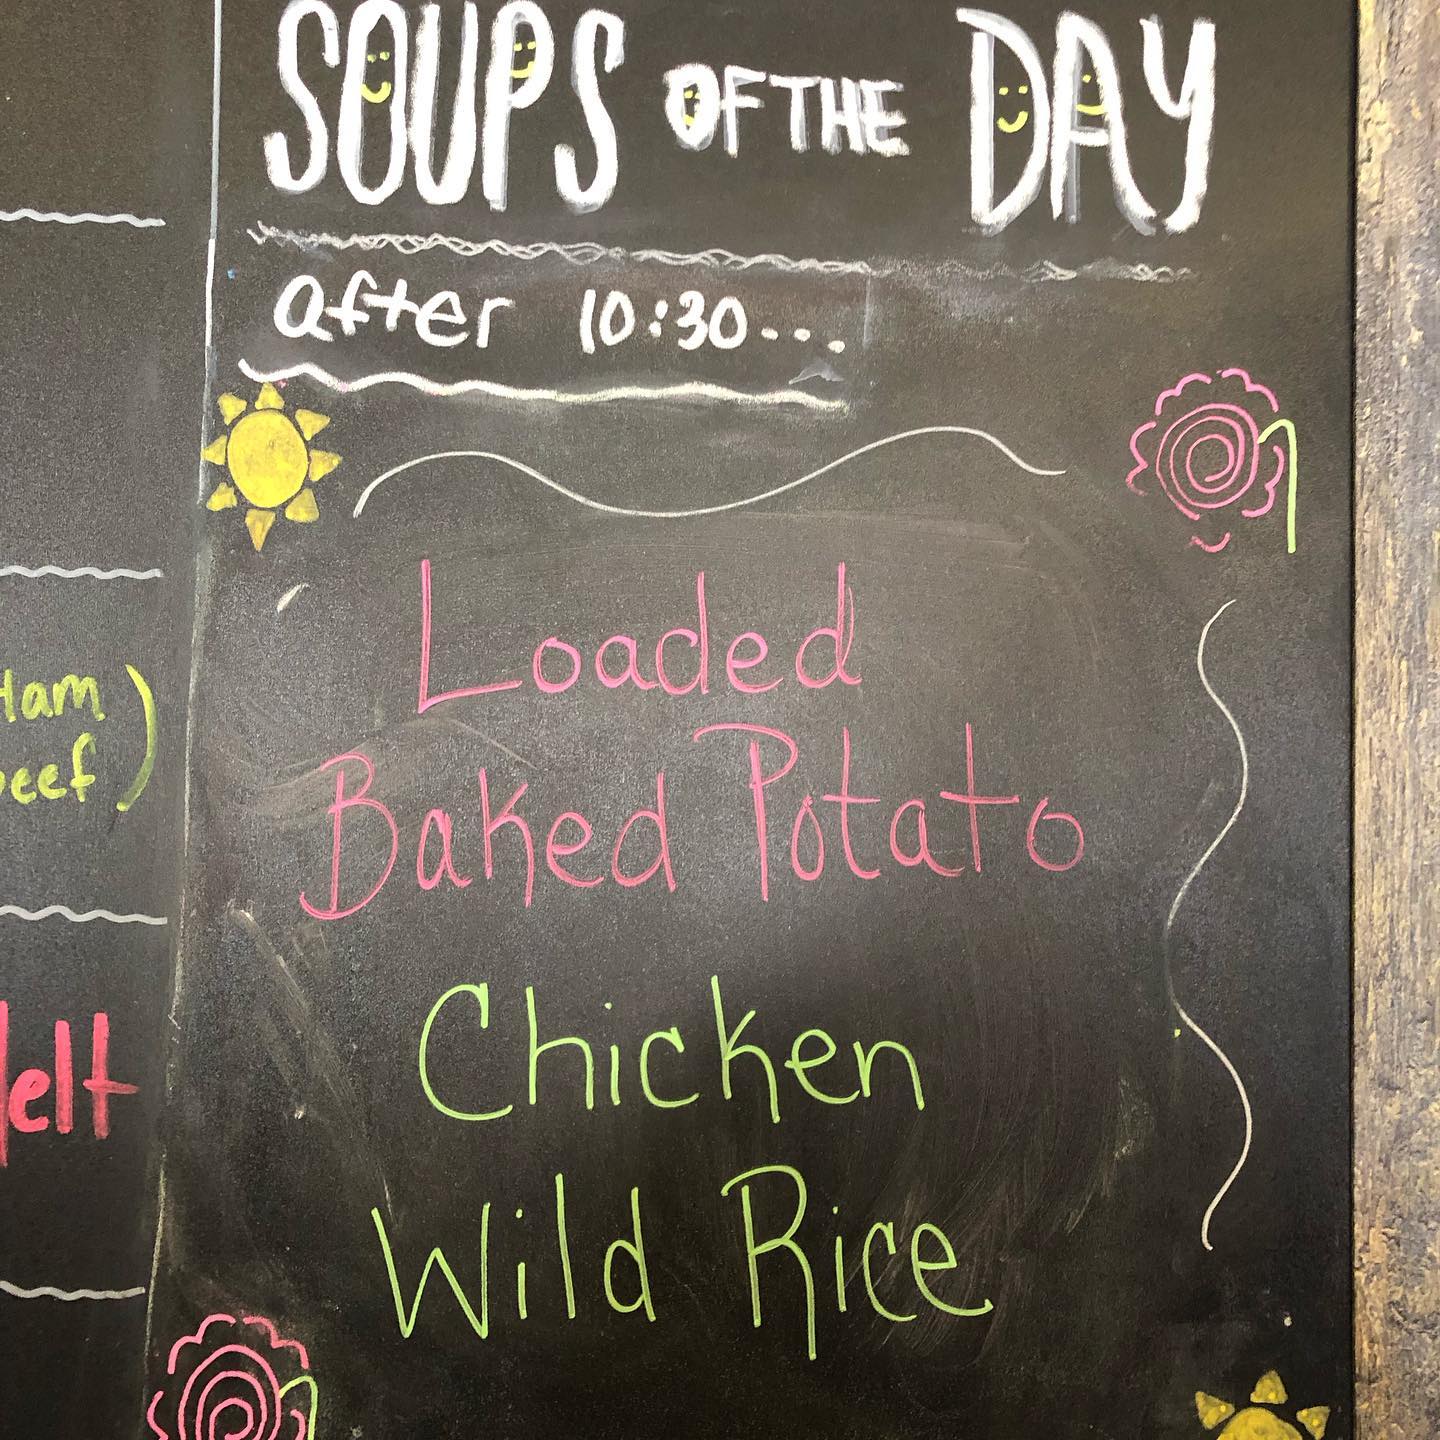 SOUPS OF THE DAY
after 10:30...
Loaded
Baked Potato
Chicken
Wild Rice
Ham
beef)
elt